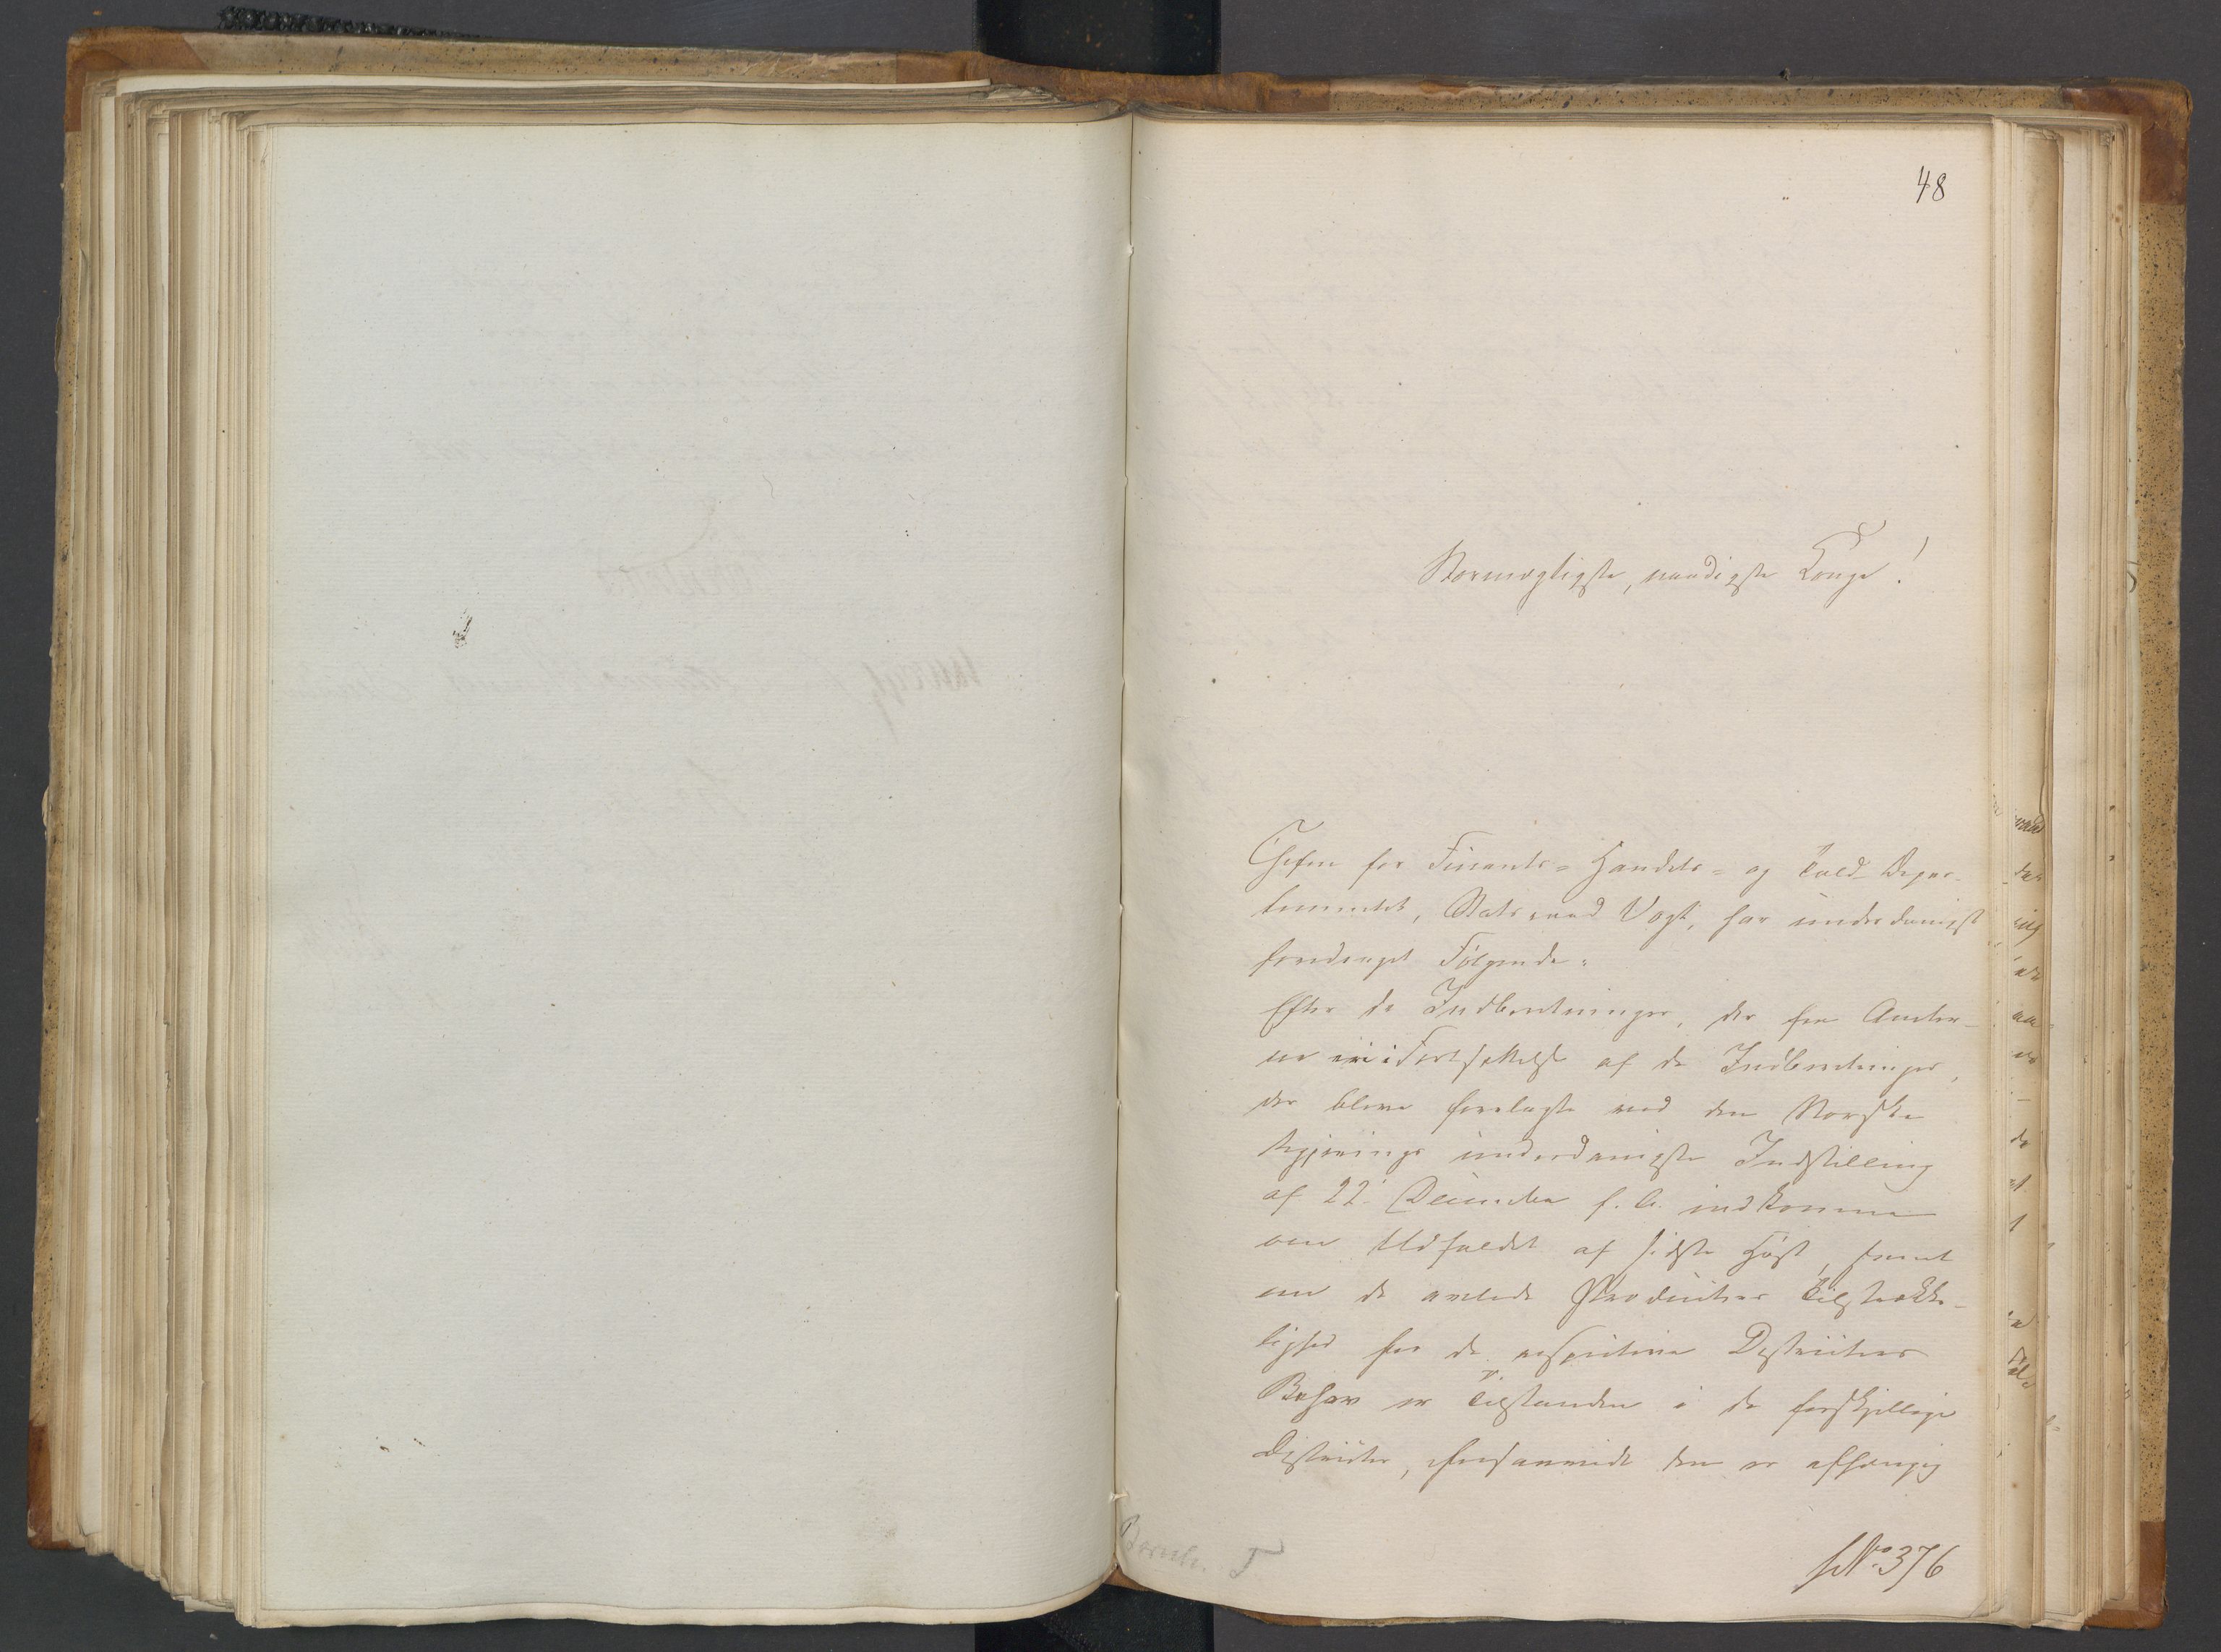 48
Stormægtigste, naadigste Konge!
Chefen for Finants- Handels- og Told-Depar-
tementet, Statsraad Vogt, har underdanigst
foredraget Følgende:
Efter de Indberetninger, der fra Amter-
ne ere i Fortsættelse af de Indberetninger,
der bleve forelagte ved den Norske
Regjerings underdanigste Indstilling
af 22 December f. A. indkomne
om Udfaldet af sidste Høst, samt
om de avlede Producters Tilstrække-
lighed for de respective Districters
Behov er Tilstanden i de forskjellige
Districter, forsaavidt den er afhængig
No. 376